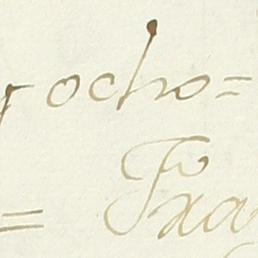 ocho=
= Fxa